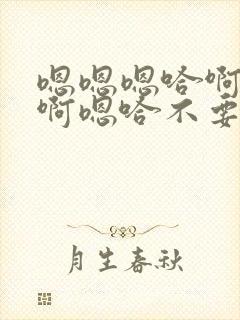 嗯嗯嗯哈啊
啊嗯哈不要
月生春秋